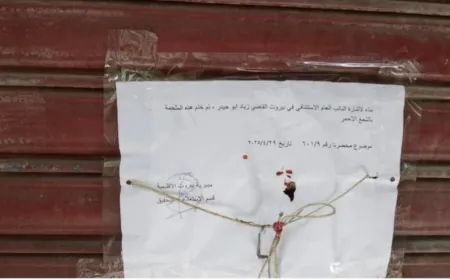 بناء لاشارة النائب العام الاستئنافي في بيروت القاضي زياد ابو حيدر ، تم ختم هذه الملحمة
بالشمع الأحمر
موضوع محضرنا رقم ٦٠١/٩ تاريخ ٢٠٢٥/٤/٢٩
مديرية بيروت الاقليمية
قسم الإستعلام